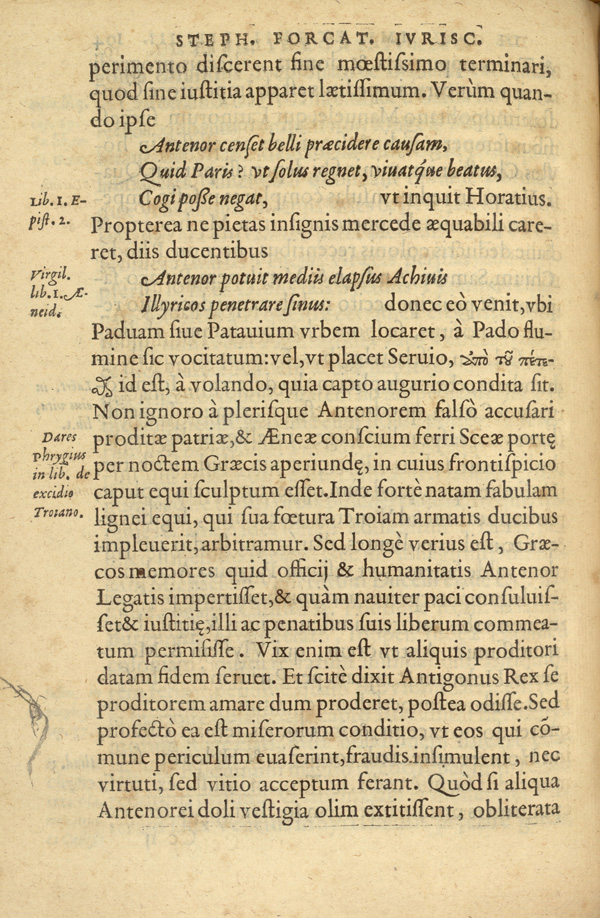 STEPH. FORCAT. IVRISC.
perimento diſcerent fine mœſtiſsimo terminari,
quod ſine iuſtitia apparet lætiſſimum. Verùm quan-
do ipſe
Antenor cenſet belli præcidere cauſam,
Quid Paris? vt ſolus regnet, viuatq́ue beatus,
Lib. 1. E-
piſt. 2.
Cogi poſſe negat, vt inquit Horatius.
Propterea ne pietas inſignis mercede æquabili care-
ret, diis ducentibus
Virgil.
lib. 1. Æ-
neid.
Antenor potuit mediis elapſus Achiuis
Illyricos penetrare ſinus: donec eò venit, vbi
Paduam ſiue Patauium vrbem locaret, à Pado flu-
mine ſic vocitatum: vel, vt placet Seruio, ἀπὸ τοῦ πέτε-
id eſt, à volando, quia capto augurio condita ſit.
Non ignoro à pleriſque Antenorem falſò accuſari
Dares
Phrygius
in lib. de
excidio
Troiano.
proditæ patriæ, & Æneæ conſcium ferri Sceæ portę
per noctem Græcis aperiundę, in cuius frontiſpicio
caput equi ſculptum eſſet. Inde fortè natam fabulam
lignei equi, qui ſua fœtura Troiam armatis ducibus
impleuerit, arbitramur. Sed longè verius eſt, Græ-
cos memores quid officij & humanitatis Antenor
Legatis impertiſſet, & quàm nauiter paci conſuluiſ-
ſet & iuſtitię, illi ac penatibus ſuis liberum commea-
tum permiſiſſe. Vix enim eſt vt aliquis proditori
datam fidem ſeruet. Et ſcitè dixit Antigonus Rex ſe
proditorem amare dum proderet, poſtea odiſſe. Sed
profectò ea eſt miſerorum conditio, vt eos qui cõ-
mune periculum euaſerint, fraudis inſimulent, nec
virtuti, ſed vitio acceptum ferant. Quòd ſi aliqua
Antenorei doli veſtigia olim extitiſſent, obliterata